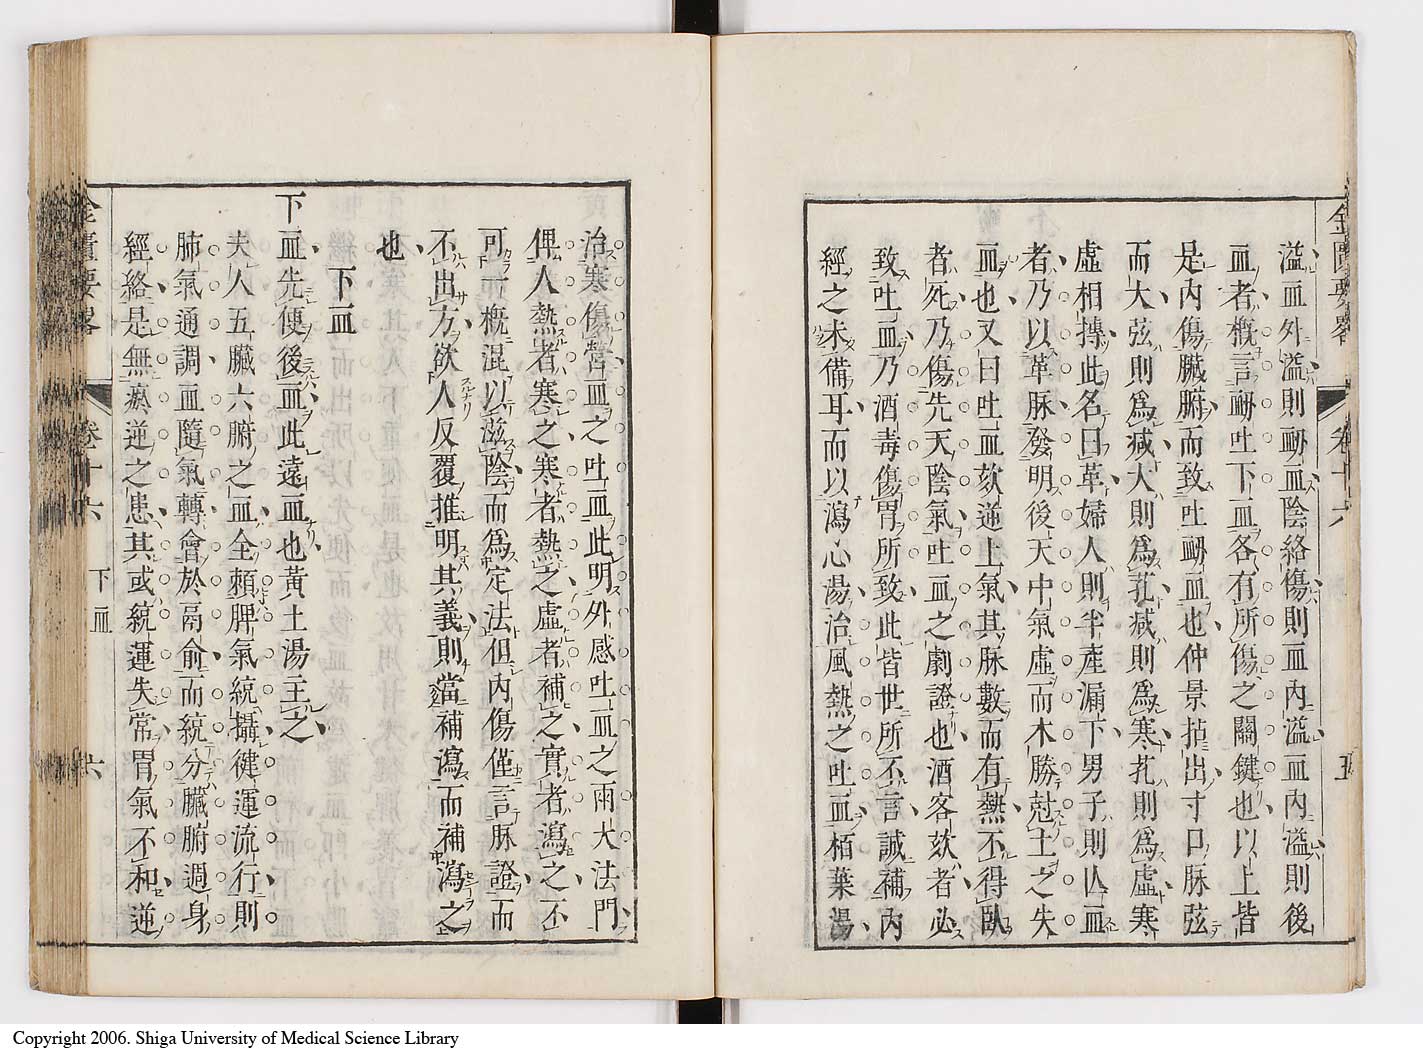 金匱要畧 卷十六 五
溢血外溢則衂血陰絡傷則血內溢血內溢則後
血者概言衂吐下血各有所傷之關鍵也以上皆
是內傷臟腑而致吐衂血也仲景掲出寸口脉弦
而大弦則爲减大則爲芤减則爲寒芤則爲虛寒
虛相摶此名曰革婦人則半產漏下男子則亾血
者乃以革脉發明後天中氣虛而木勝尅土之失
血也又曰吐血欬逆上氣其脉數而有熱不得臥
者死乃傷先天陰氣吐血之劇證也酒客欬者必
致吐血乃酒毒傷胃所致此皆世所不言誠補內
經之未備耳而以瀉心湯治風熱之吐血栢葉湯
治寒傷營血之吐血此明外感吐血之兩大法門
俾人熱者寒之寒者熱之虛者補之實者瀉之不
可一概混以滋陰而爲定法但內傷僅言脉證而
不出方欲人反覆推明其義則當補瀉而補瀉之
也
下血
下血先便後血此遠血也黃土湯主之
夫人五臟六腑之血全賴脾氣統攝健運流行則
肺氣通調血隨氣轉會於鬲俞而統分臟腑週身
經絡是無瘀逆之患其或統運失常胃氣不和逆
金匱要畧 卷十六 下血 六
Copyright 2006. Shiga University of Medical Science Library